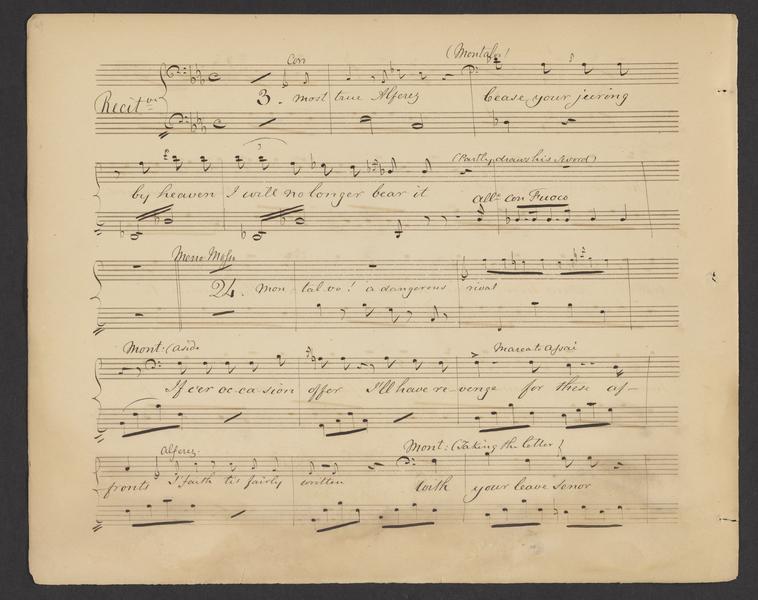 Con (Montalvo)
Recit.ve 3. most true Alferez Cease your jeering
(Partly draws his sword)
by heaven I will no longer bear it
All.o Con Fuoco
Meno Mosso
24. Mon-tal-vo! a dangerous rival
Mont: (Aside Marcato Assai
If e'er oc-ca-sion offer I'll have re-venge for these af-
Alferez. Mont: (Taking the letter)
fronts I'faith tis fairly written with your leave Senor